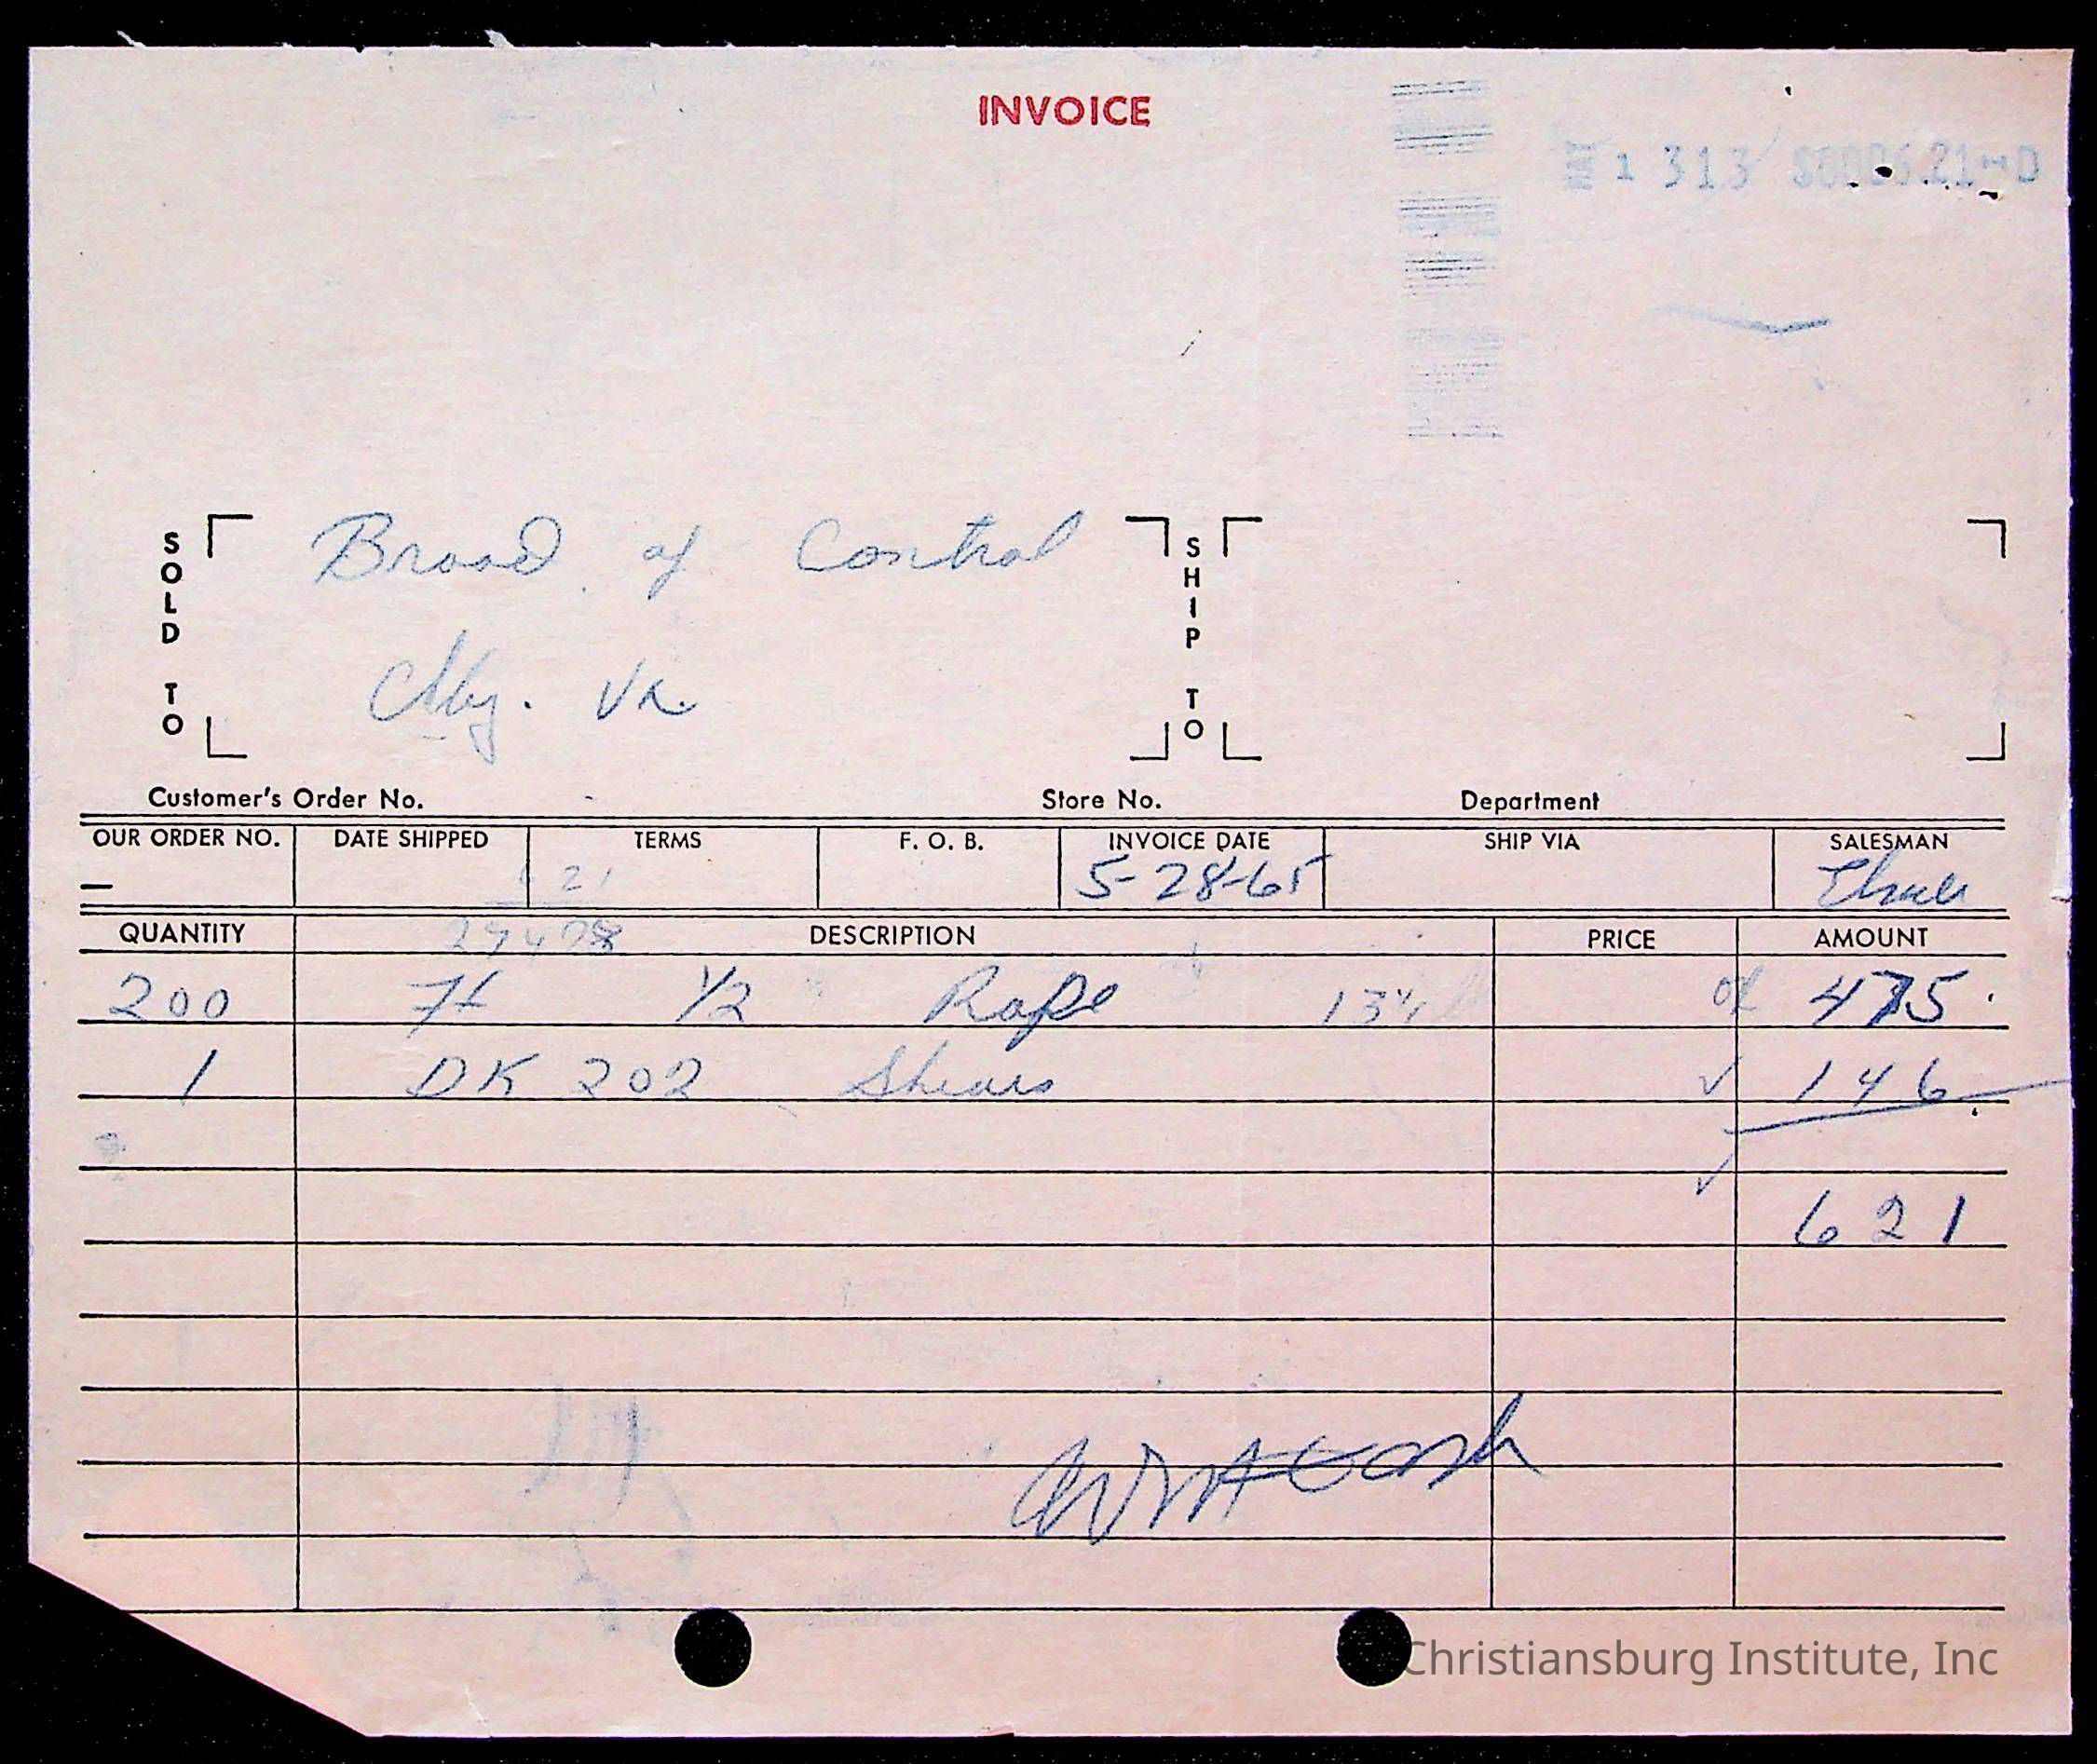 INVOICE
1 313 $0006.21
SOLD TO
Broad of Control
Cbg. Va.
SHIP TO
Customer's Order No. Store No. Department
OUR ORDER NO. DATE SHIPPED TERMS F. O. B. INVOICE DATE SHIP VIA SALESMAN
21 5-28-65
QUANTITY DESCRIPTION PRICE AMOUNT
200 Ft 1/2 " Rope 475
1 DK 202 Shears 146
621
Christiansburg Institute, Inc